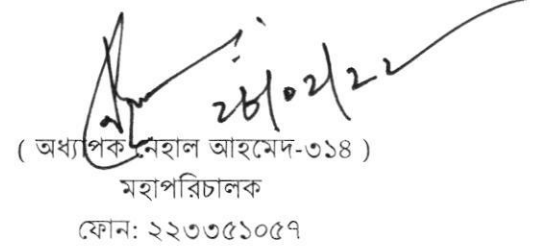 ২৮/০২/২২
( অধ্যাপক নেহাল আহমেদ-৩১৪ )
মহাপরিচালক
ফোন: ২২৩৩৫১০৫৭